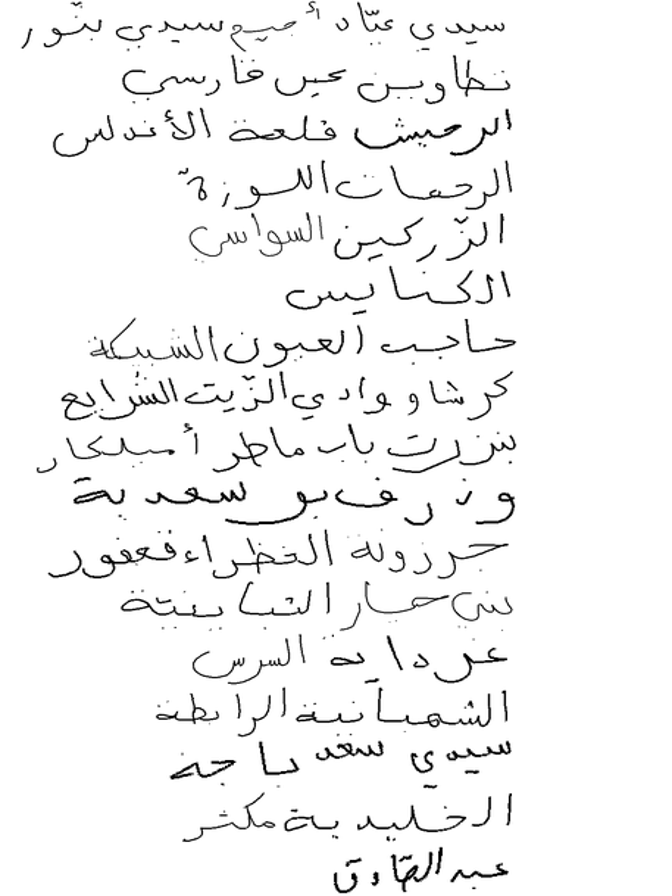 سيدي عيّاد أجيم سيدي بنّور
تطاوين عين فارسي
الرحيش قلعة الأندلس
الرحمات اللوزة
الزّركين السواسي
الكنايس
حاجب العيون الشبيكة
كرشاو وادي الزّيت الشرايع
بنزرت باب ماطر أميلكار
وذرف بو سعدية
جرزونة الخظراء قعفور
بني حسار التبابنية
غرداية السرس
الشهبانية الرابطة
سيدي سعد باجة
الخليدية مكثر
عبد الصّادق